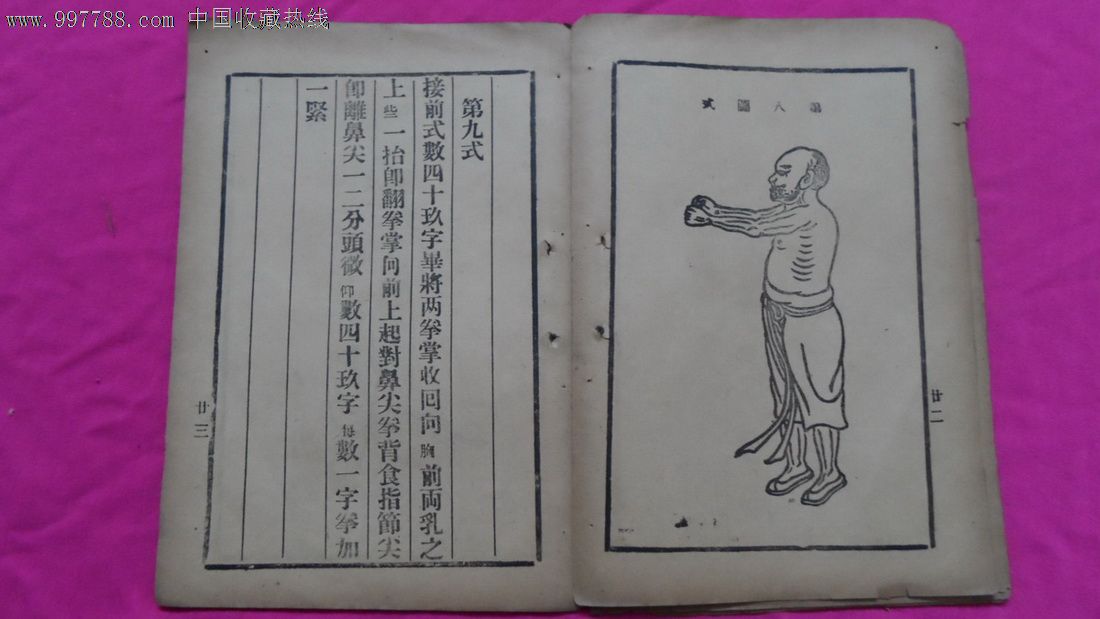 www.997788.com 中国收藏热线
第八圖式
廿二
第九式
接前式數四十玖字畢將两拳掌收回向胸前両乳之
上些一抬卽翻拳掌向前上起對鼻尖拳背食指節尖
卽離鼻尖一二分頭微仰數四十玖字每數一字拳加
一緊
廿三